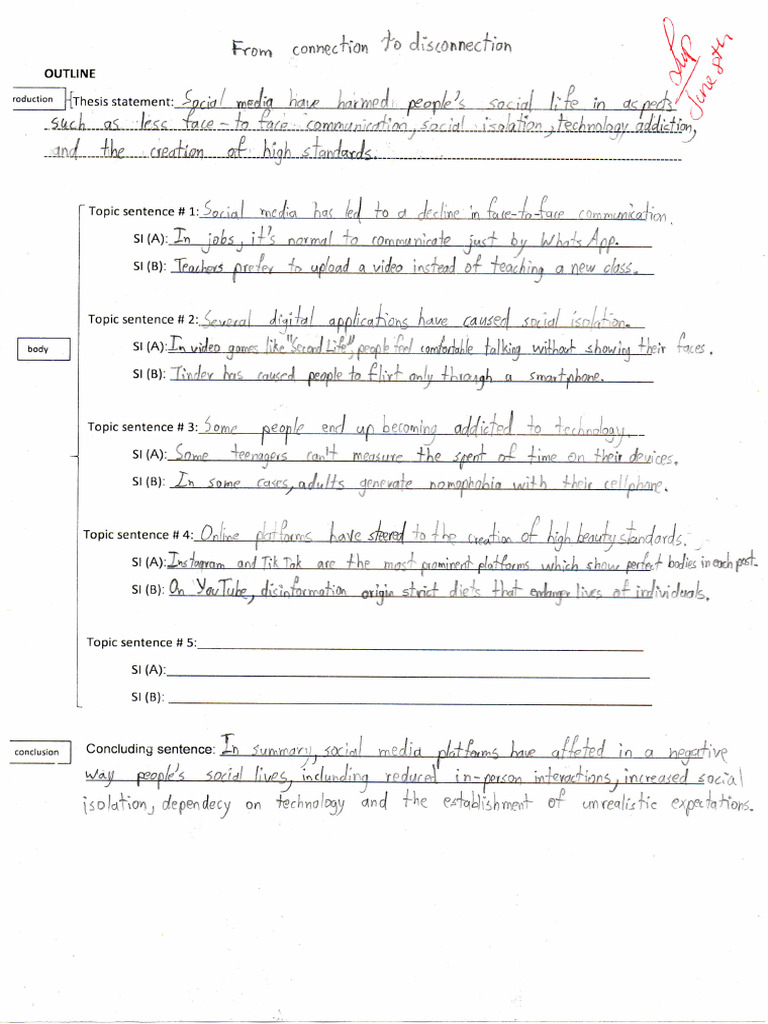 From connection to disconnection
June 8th
OUTLINE
roduction
Thesis statement: Social media have harmed people's social life in aspects
such as less face-to face communication, social isolation, technology addiction,
and the creation of high standards.
Topic sentence # 1: Social media has led to a decline in face-to-face communication.
SI (A): In jobs, it's normal to communicate just by WhatsApp.
SI (B): Teachers prefer to upload a video instead of teaching a new class.
Topic sentence # 2: Several digital applications have caused social isolation.
body
SI (A): In video games like "Second Life", people feel comfortable talking without showing their faces.
SI (B): Tinder has caused people to flirt only through a smartphone.
Topic sentence # 3: Some people end up becoming addicted to technology.
SI (A): Some teenagers can't measure the spent of time on their devices.
SI (B): In some cases, adults generate nomophobia with their cellphone.
Topic sentence # 4: Online platforms have steered to the creation of high beauty standards.
SI (A): Instagram and Tik Tok are the most prominent platforms which show perfect bodies in each post.
SI (B): On YouTube, disinformation origin strict diets that endanger lives of individuals.
Topic sentence # 5:
SI (A):
SI (B):
conclusion
Concluding sentence: In summary, social media platforms have affeted in a negative
way people's social lives, inclunding reduced in-person interactions, increased social
isolation, dependecy on technology and the establishment of unrealistic expectations.